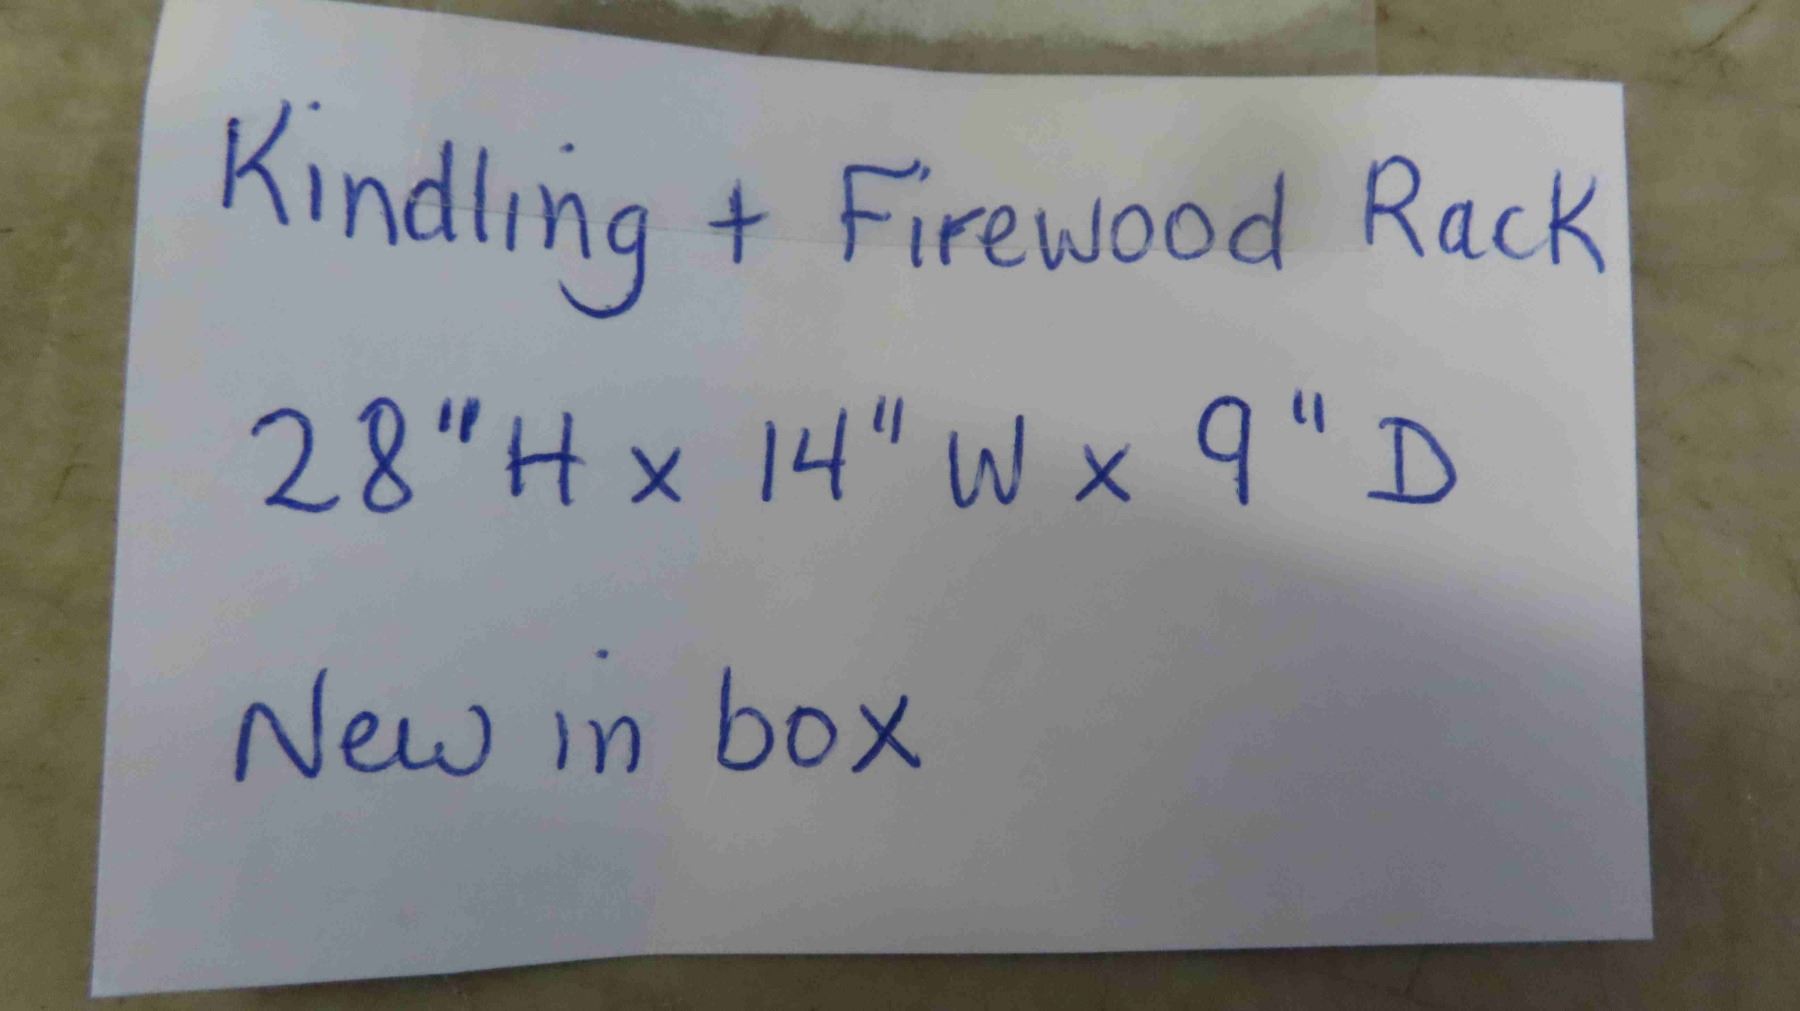 Kindling + Firewood Rack
28" H x 14" W x 9" D
New in box